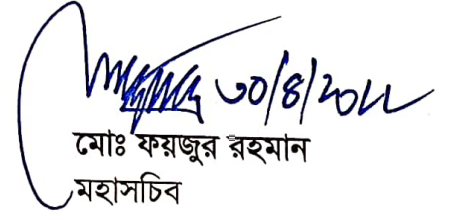 ৩০/৪/২০২২
মোঃ ফয়জুর রহমান
মহাসচিব